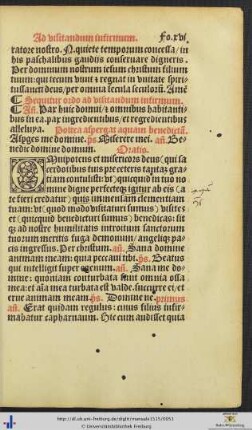 Ad visitandum infirmum. Fo.xvi.
ratore nostro. ℟. quiete temporum concessa / in
his paschalibus gaudijs conseruare digneris.
Per dominum nostrum iesum christum filium
tuum: qui tecum viuit z regnat in vnitate spiri-
tussancti deus / per omnia secula seculorum. Amē
Sequitur ordo ad visitandum infirmum.
Añ. Pax huic domui: z omnibus habitanti-
bus in ea. pax ingredientibus / et egredientibus
alleluya. Postea aspergat aquam benedictā.
Asperges me domine. p̄s Miserere mei. añ. Be-
nedic domine domum. Oratio.
Omnipotens et misericors deus / qui sa
cerdotibus tuis pre ceteris tantam gra-
tiam contulisti: vt quicquid in tuo no-
mine digne perfecteqz agitur / ab eis (a
te fieri credatur) quesumus immensam clementiam
tuam: vt (quod modo visitaturi sumus) visites
et (quicquid benedicturi sumus) benedicas: sit
qz ad nostre humilitatis introitum sanctorum
tuorum meritis fuga demonum / angeliqz pa-
cis ingressus. Per christum. añ. Sana domine
animam meam: quia peccaui tibi. p̄s. Beatus
qui intelligit super egenum. añ. Sana me do-
mine: quoniam conturbata sunt omnia ossa
mea: et aīa mea turbata est valde. succurre ei / et
erue animam meam. p̄s. Domine ne primus
añ. Erat quidam regulus: cuius filius infir-
mabatur capharnaum. Hic cum audisset quia
© Universitätsbibliothek Freiburg